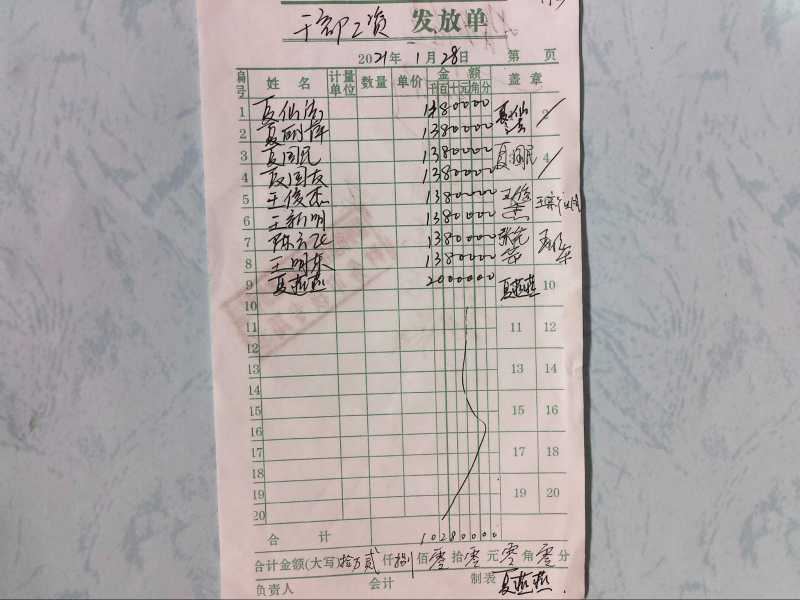 干部工资 发放单
2021年 1月28日 第 页
编号 姓名 计量单位 数量 单价 金额 盖章
千百十元角分
1 夏仙法 1380000 2
2 1380000
3 夏国民 1380000 夏国民 4
4 夏国友 1380000
5 王俊杰 1380000 王俊杰
6 王新明 1380000
7 陈云飞 1380000
8 王明东 1380000
9 夏燕燕 2000000 夏燕燕 10
10
11 11 12
12
13 13 14
14
15 15 16
16
17 17 18
18
19 19 20
20
合计 10280000
合计金额(大写) 拾万贰仟捌佰零拾零元零角零分
负责人 会计 制表 夏燕燕